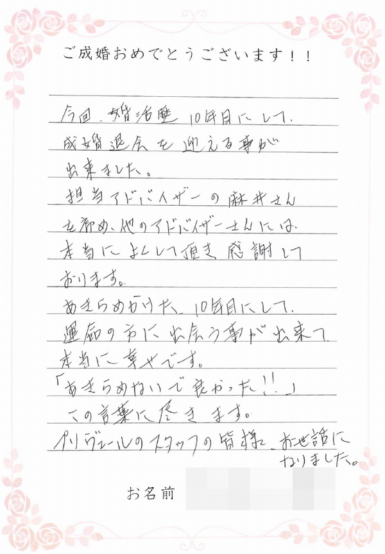 ご成婚おめでとうございます！！
今回、婚活歴 10年目にして、
成婚退会を迎える事が
出来ました。
担当アドバイザーの麻井さん
を初め、他のアドバイザーさんには
本当によくして頂き感謝して
おります。
あきらめかけた、10年目にして、
運命の方に出会う事が出来て
本当に幸せです。
「あきらめないで良かった!!」
この言葉に尽きます。
プリヴェールのスタッフの皆様、お世話に
なりました。
お名前